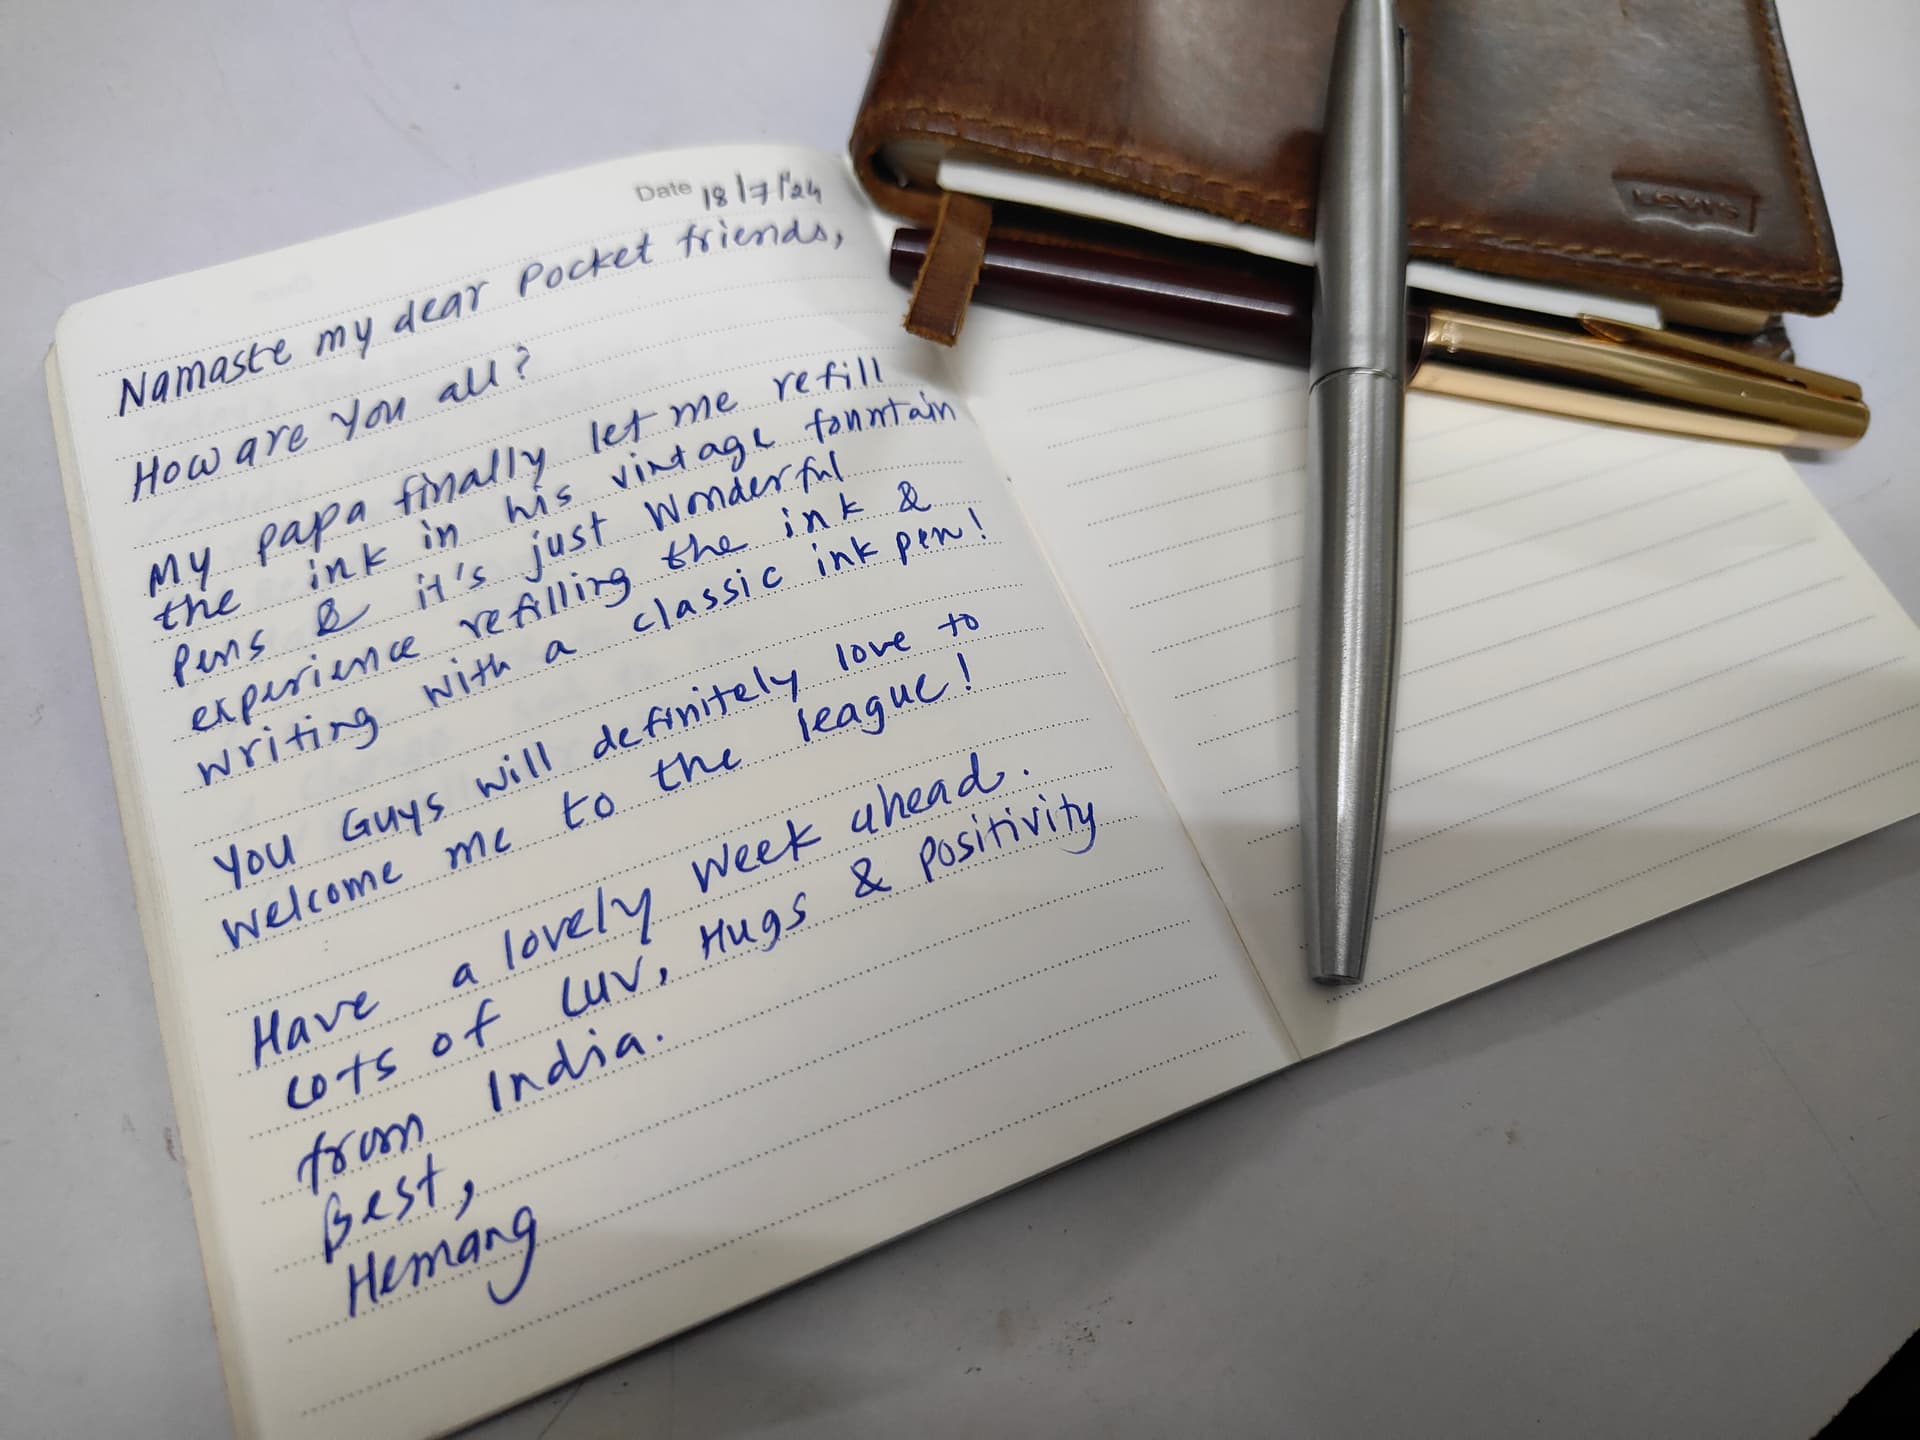 Date 18/7/'24
Namaste my dear Pocket friends,
How are you all?
My papa finally let me refill
the ink in his vintage fountain
pens & it's just Wonderful
experience refilling the ink &
writing with a classic ink pen!
You Guys will definitely love to
welcome me to the league!
Have a lovely week ahead.
Lots of Luv, Hugs & Positivity
from India.
Best,
Hemang
LEVI'S